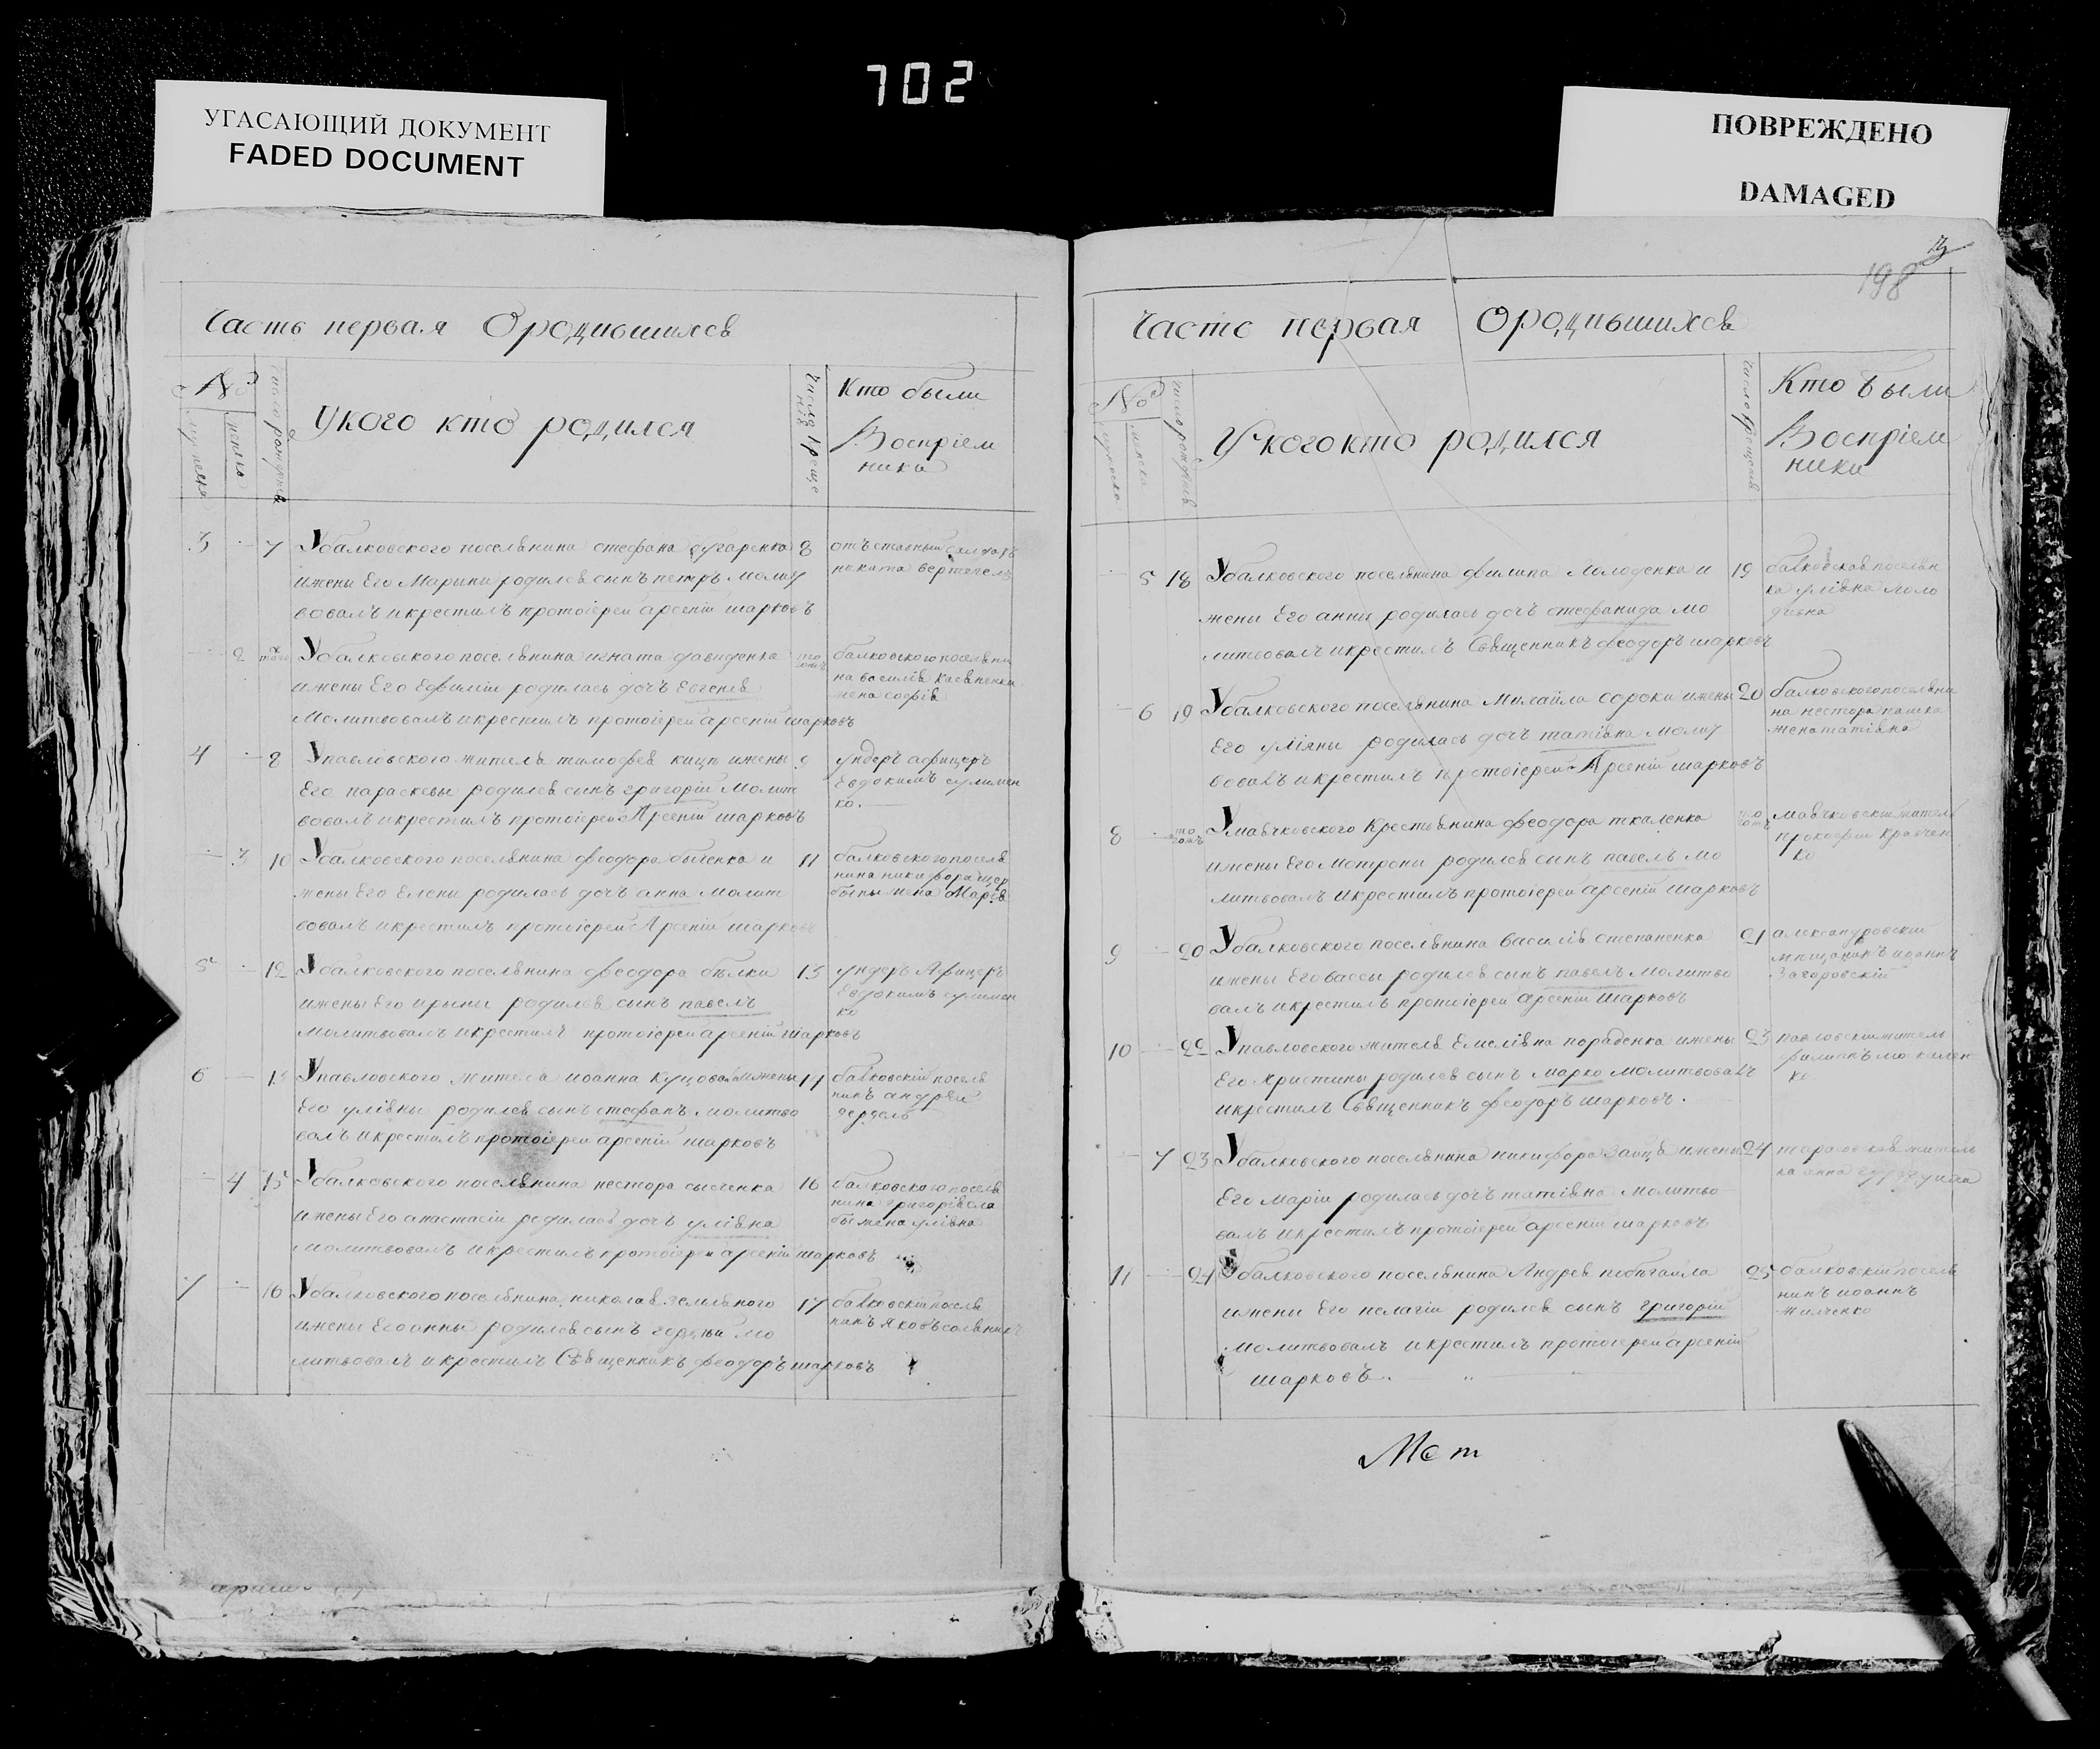 702
УГАСАЮЩИЙ ДОКУМЕНТ
FADED DOCUMENT
ПОВРЕЖДЕНО
DAMAGED
Часть первая Ородившихся
№
У кого кто родился
Кто были
Воспріем
ники
3 7 У балковского поселянина стефана бугаренка 8
и жены Его Марыни родился сынъ петръ молит
вовалъ и крестилъ протоіерей арсеній шарковъ
отъставный салдатъ
никита вертепелъ
2 У балковского поселянина игната давиденка
и жены Его Ефиміи родилась дочь Евгенія
Молитвовалъ и крестилъ протоіерей арсеній шарковъ
балковского поселяни
на василія
жена софія
4 8 У павловского жителя тимофея кици и жены 9
Его параскевы родился сынъ григорій Молит
вовалъ и крестилъ протоіерей Арсеній шарковъ
ундеръ афицеръ
Евдокимъ сулимен
ко.
3 10 У балковского поселянина феодора быченка и 11
жены Его Елены родилась дочь анна молит
вовалъ и крестилъ протоіерей Арсеній шарковъ
балковского поселя
нина никифора щер
бины жена Марія
5 12 У балковского поселянина феодора бѣлки 13
и жены Его ирыни родился сынъ павелъ
молитвовалъ и крестилъ протоіерей арсеній шарковъ
ундеръ Афицеръ
Евдокимъ сулимен
ко
6 13 У павловского жителя иоанна куцовола и жены 14
Его уліяны родился сынъ стефанъ молитво
валъ и крестилъ протоіерей арсеній шарковъ
балковскій поселя
нинъ андрей
4 15 У балковского поселянина нестора сысченка 16
и жены Его анастасіи родилась дочь уліяна
молитвовалъ и крестилъ протоіерей арсеній шарковъ
балковского поселя
нина григорія сла
бы жена уліяна
7 16 У балковского поселянина николая земляного 17
и жены Его анны родился сынъ гордѣй мо
литвовалъ и крестилъ Священникъ феодоръ шарковъ
балковскій поселя
нинъ яковъ соляникъ
198
Часть первая Ородившихся
№
У кого кто родился
Кто были
Воспріем
ники
5 18 У балковского поселянина филипа молоденка и 19
жены Его анны родилась дочь стефанида мо
литвовалъ и крестилъ Священникъ феодоръ шарковъ
балковская поселян
ка уліяна моло
6 19 У балковского поселянина Михайла сороки и жены 20
Его уліяны родилась дочь татіяна молит
вовалъ и крестилъ протоіерей Арсеній шарковъ
балковского поселяни
на нестора пашка
жена татіяна
8 У маячковского Крестянина феодора ткаленка
и жены Его мотроны родился сынъ павелъ мо
литвовалъ и крестилъ протоіерей арсеній шарковъ
маячковскій житель
прокофій кравчен
ко
9 20 У балковского поселянина василія степаненка 21
и жены Его вассы родился сынъ павелъ молитво
валъ и крестилъ протоіерей арсеній шарковъ
александровскій
мищанинъ иоаннъ
Загоровскій
10 22 У павловского жителя Емеліяна порабенка и жены 23
Его христины родился сынъ марко молитвовалъ
и крестилъ Священникъ феодоръ шарковъ.
павловскій житель
филипъ
ко
7 23 У балковского поселянина никифора заица и жены 24
Его маріи родилась дочь татіяна молитво
валъ и крестилъ протоіерей арсеній шарковъ
житель
ка анна
11 24 У балковского поселянина Андрея побѣгаила 25
и жены Его пелагіи родился сынъ григорій
молитвовалъ и крестилъ протоіерей арсеній
шарковъ.
балковскій поселя
нинъ иоаннъ
жилченко
Мет